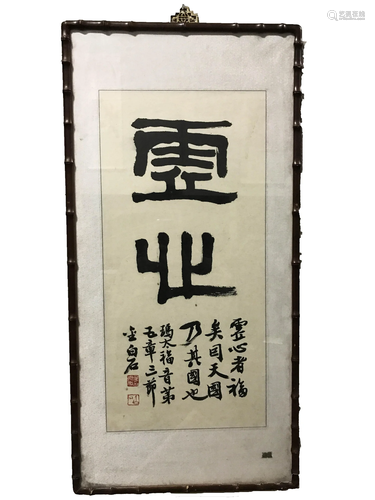 霊
心
霊心者福
矣因天國
乃其國也
瑪太福音第
五章三節
金白石